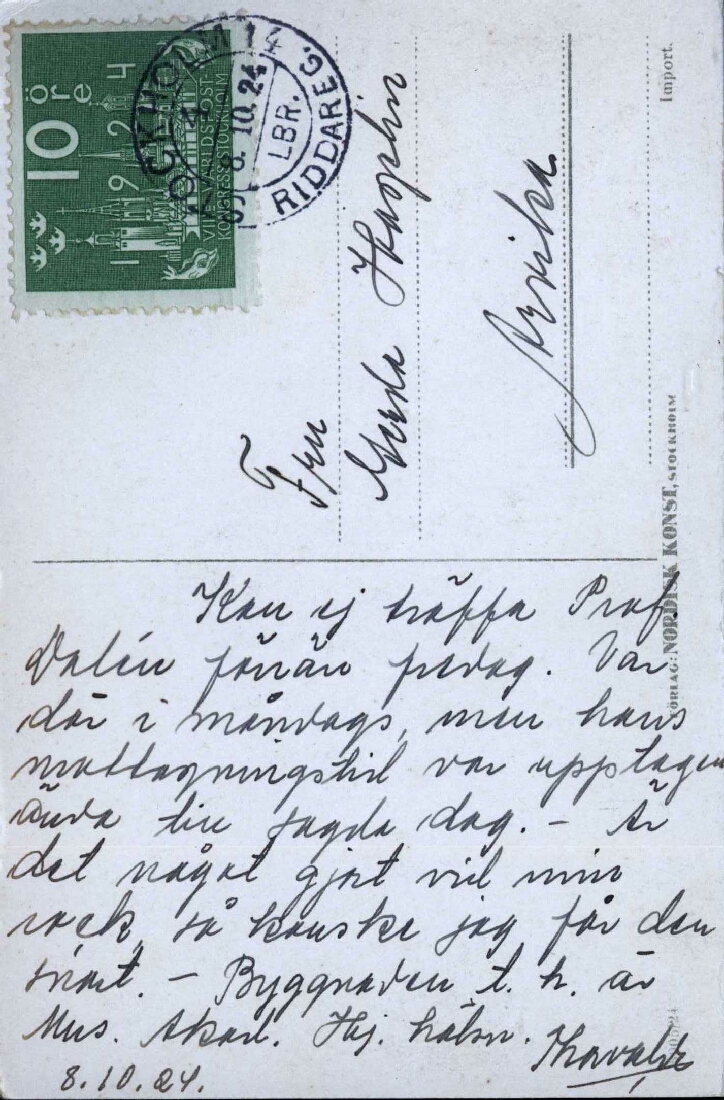 10 öre
1924
VIII VÄRLDSPOST-
KONGRESS STOCKHOLM
STOCKHOLM 14
8.10.24
LBR.
RIDDAREG.
Import.
Fru
Arvika
FÖRLAG: NORDISK KONST, STOCKHOLM
Kan ej träffa Prof.
Dalén förrän fredag. Var
där i måndags, men hans
mottagningstid var upptagen
ända till sagda dag. – Är
det något gjort vid min
rock, så kanske jag får den
snart. – Byggnaden t. h. är
Mus. Akad. Hj. hälsn.
8.10.24.